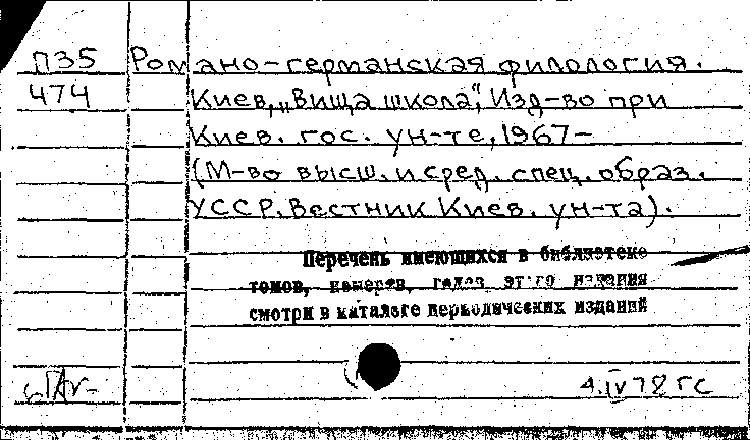 П35 Романо-германская филология.
474 Киев, „Вища школа", Изд-во при
Киев. гос. ун-те, 1967-
(М-во высш. и сред. спец. образ.
УССР. Вестник Киев. ун-та).
Перечень имеющихся в библиотеке
томов, номеров, годов этого издания
смотри в каталоге периодических изданий
4.IV 78 ГС